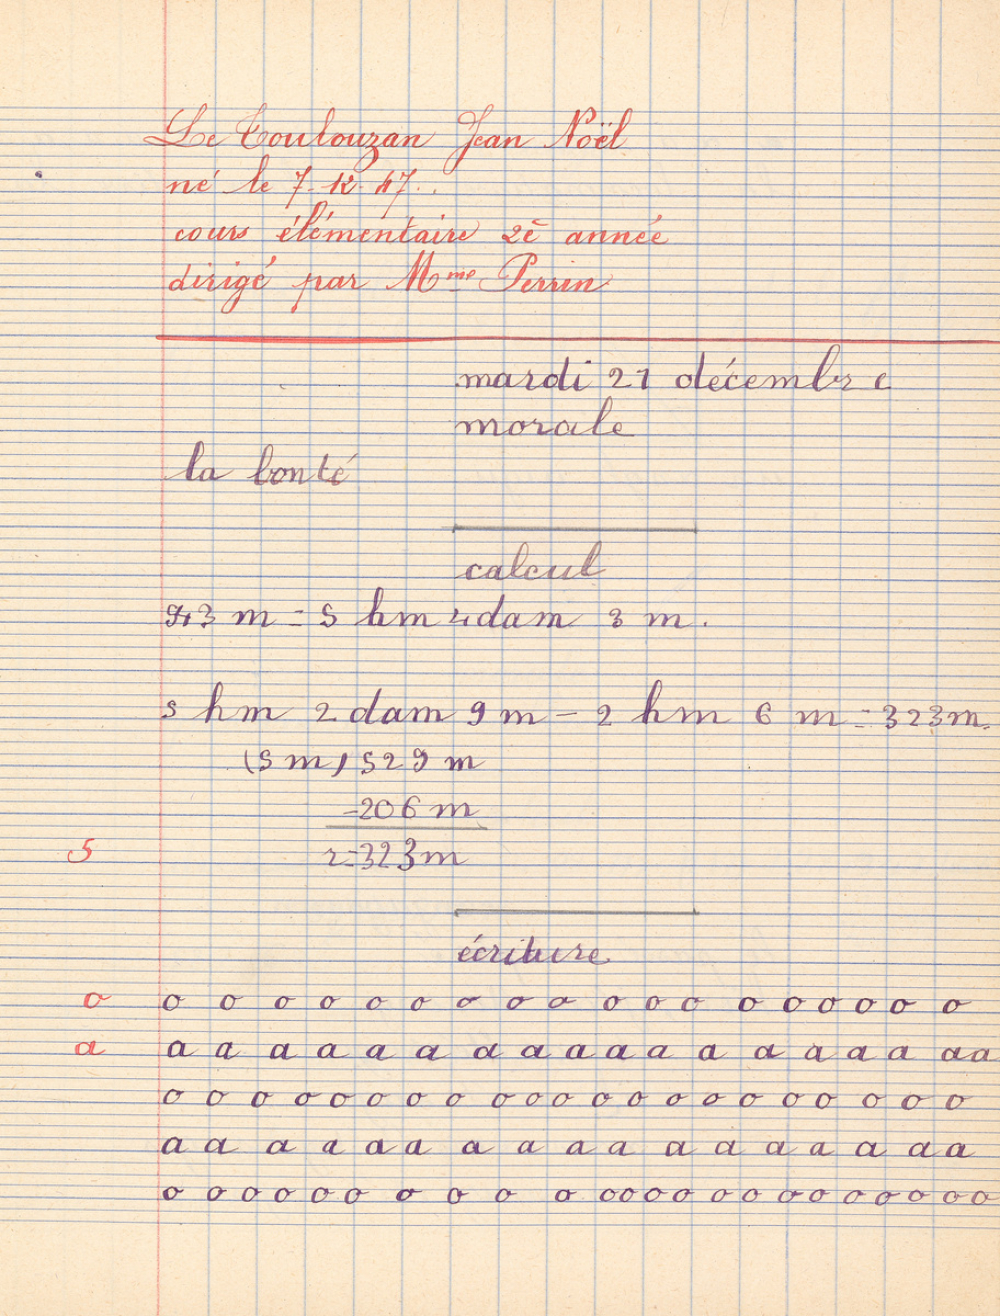 Le Toulouzan Jean Noël
né le 7-12-47..
cours élémentaire 2è année
dirigé par Mme Perrin
mardi 21 décembre
morale
la bonté
calcul
543 m = 5 hm 4 dam 3 m.
5 hm 2 dam 9 m - 2 hm 6 m = 323 m.
(5 m) 529 m
-206 m
5 r = 323 m
écriture
o o o o o o o o o o o o o o o o o o o
a a a a a a a a a a a a a a a a a aa
o o o o o o o o o o o o o o o o o o o o o
a a a a a a a a a a a a a a a a a
o o o o o o o o o o oo o o o o o o o o o o o